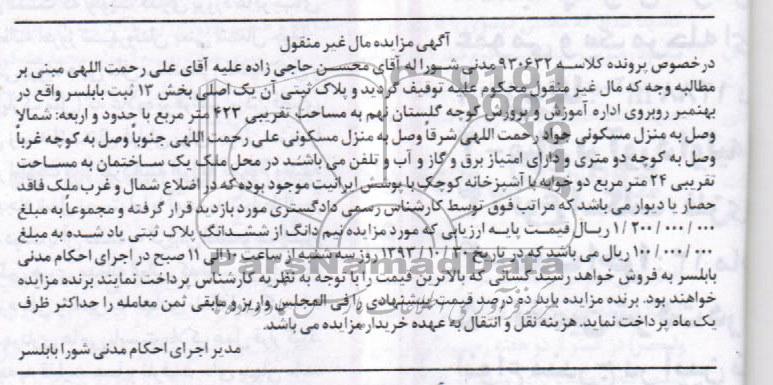 آگهی مزایده مال غیر منقول
در خصوص پرونده کلاسه ۹۳۰۶۳۲ مدنی شورا له آقای محسن حاجی زاده علیه آقای علی رحمت اللهی مبنی بر
مطالبه وجه که مال غیر منقول محکوم علیه توقیف گردید و پلاک ثبتی آن یک اصلی بخش ۱۳ ثبت بابلسر واقع در
بهنمیر روبروی اداره آموزش و پرورش کوچه گلستان نهم به مساحت تقریبی ۴۲۳ متر مربع با حدود و اربعه: شمالا
وصل به منزل مسکونی جواد رحمت اللهی شرقا وصل به منزل مسکونی علی رحمت اللهی جنوباً وصل به کوچه غرباً
وصل به کوچه دو متری و دارای امتیاز برق و گاز و آب و تلفن می باشند در محل ملک یک ساختمان به مساحت
تقریبی ۲۴ متر مربع دو خوابه با آشپزخانه کوچک با پوشش ایرانیت موجود بوده که در اضلاع شمال و غرب ملک فاقد
حصار یا دیوار می باشد که مراتب فوق توسط کارشناس رسمی دادگستری مورد بازدید قرار گرفته و مجموعاً به مبلغ
۱/۲۰۰/۰۰۰/۰۰۰ ریال قیمت پایه ارزیابی که مورد مزایده نیم دانگ از ششدانگ پلاک ثبتی یاد شده به مبلغ
۱۰۰/۰۰۰/۰۰۰ ریال می باشد که در تاریخ ۱۳۹۳/۱۰/ روز سه شنبه از ساعت ۱۰ الی ۱۱ صبح در اجرای احکام مدنی
بابلسر به فروش خواهد رسید. کسانی که بالاترین قیمت را با توجه به نظریه کارشناس پرداخت نمایند برنده مزایده
خواهند بود. برنده مزایده باید ده درصد قیمت پیشنهادی را فی المجلس واریز و مابقی ثمن معامله را حداکثر ظرف
یک ماه پرداخت نماید. هزینه نقل و انتقال به عهده خریدار مزایده می باشد.
مدیر اجرای احکام مدنی شورا بابلسر
ParsNamadData